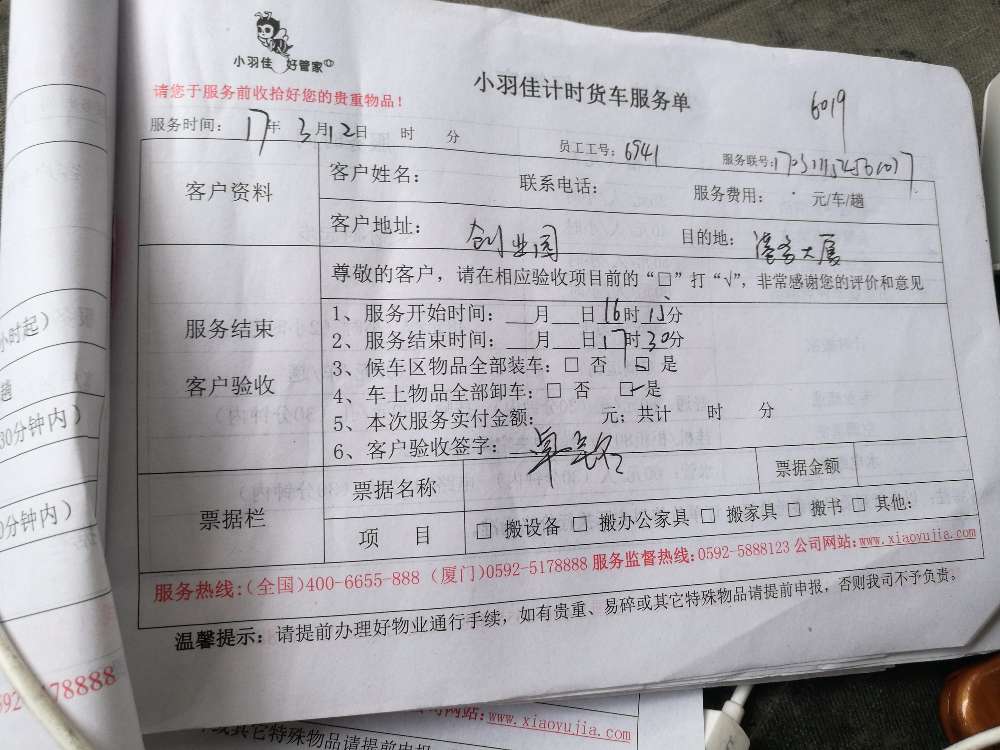 小羽佳 好管家
小羽佳计时货车服务单
6019
请您于服务前收拾好您的贵重物品！
服务时间： 17年 3月12日 时 分
员工工号：6941 服务联号：
客户资料
客户姓名： 联系电话： 服务费用： 元/车/趟
客户地址： 创业园 目的地： 大厦
服务结束
客户验收
尊敬的客户，请在相应验收项目前的“□”打“√”，非常感谢您的评价和意见
1、服务开始时间：___月___日16时15分
2、服务结束时间：___月___日17时30分
3、候车区物品全部装车：□ 否 □ 是
4、车上物品全部卸车：□ 否 □ 是
5、本次服务实付金额： 元；共计 时 分
6、客户验收签字：
票据栏
票据名称 票据金额
项 目 □ 搬设备 □ 搬办公家具 □ 搬家具 □ 搬书 □ 其他：
服务热线：(全国)400-6655-888 (厦门)0592-5178888 服务监督热线：0592-5888123 公司网站：www.xiaoyujia.com
温馨提示：请提前办理好物业通行手续，如有贵重、易碎或其它特殊物品请提前申报，否则我司不予负责。
小时起）
趟
30分钟内）
0分钟内）
592 178888
公司网站：www.xiaoyujia.com
或其它特殊物品请提前申报